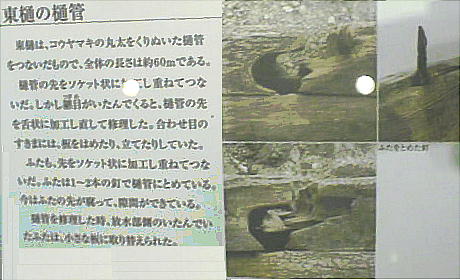 東樋の樋管
東樋は、コウヤマキの丸太をくりぬいた樋管
をつないだもので、全体の長さは約60mである。
樋管の先をソケット状に加工し重ねてつな
いだ。しかし継目がいたんでくると、樋管の先
を舌状に加工し直して修理した。合わせ目の
すきまには、板をはめたり、立てたりしていた。
ふたも、先をソケット状に加工し重ねてつな
いだ。ふたは1〜2本の釘で樋管にとめている。
今はふたの先が腐って、隙間ができている。
樋管を修理した時、放水部側のいたんでい
たふたは、小さな板に取り替えられた。
ふたをとめた釘